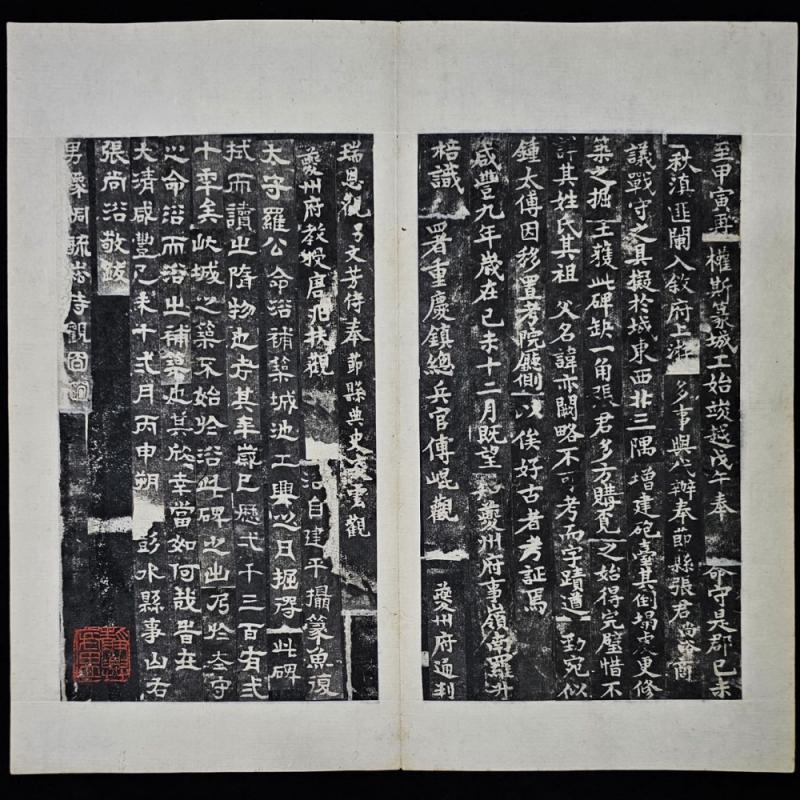 至甲寅再權斯篆城工始竣越戊午奉 命守是郡己未
秋滇匪闌入敘府上游多事興 辦奉節縣張君尚 商
議戰守之具擬於城東西北三隅增建砲臺其倒塌處更修
築之掘土獲此碑缺一角張君多方購覓之始得完璧惜不
詳其姓氏其祖父名諱亦闕略不可考而字蹟遒勁宛似
鍾太傅因移置考院廳側以俟好古者考証焉
咸豐九年歲在己未十二月既望 夔州府事嶺南羅升
梧識 署重慶鎮總兵官傅崐觀 夔州府通判
瑞恩觀子文芳侍奉節縣典史 雲觀
夔州府教授唐 扶觀 沿自建平攝篆魚復
太守羅公命沿補築城池工興之日掘得此碑
拭而讀之隋物也考其年歲已歷弌千三百有弍
十年矣此城之築不始於沿此碑之出乃於太守
之命沿而沿之補築也其欣幸當如何哉昔在
大清咸豐己未十弍月丙申朔 彭水縣事山右
張尚沿敬跋
男豫 侍觀